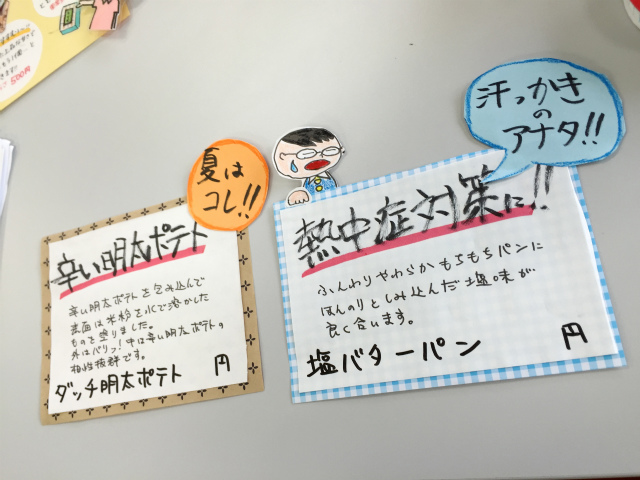 500円
夏は
コレ!!
辛い明太ポテト
辛い明太ポテトを包み込んで
表面は米粉を水で溶かした
ものを塗りました。
外はバリッ!中は辛い明太ポテトの
相性抜群です。
ダッチ明太ポテト 円
汗っかき
の
アナタ!!
熱中症対策に!!
ふんわりやわらかもちもちパンに
ほんのりとしみ込んだ塩味が
良く合います。
塩バターパン 円